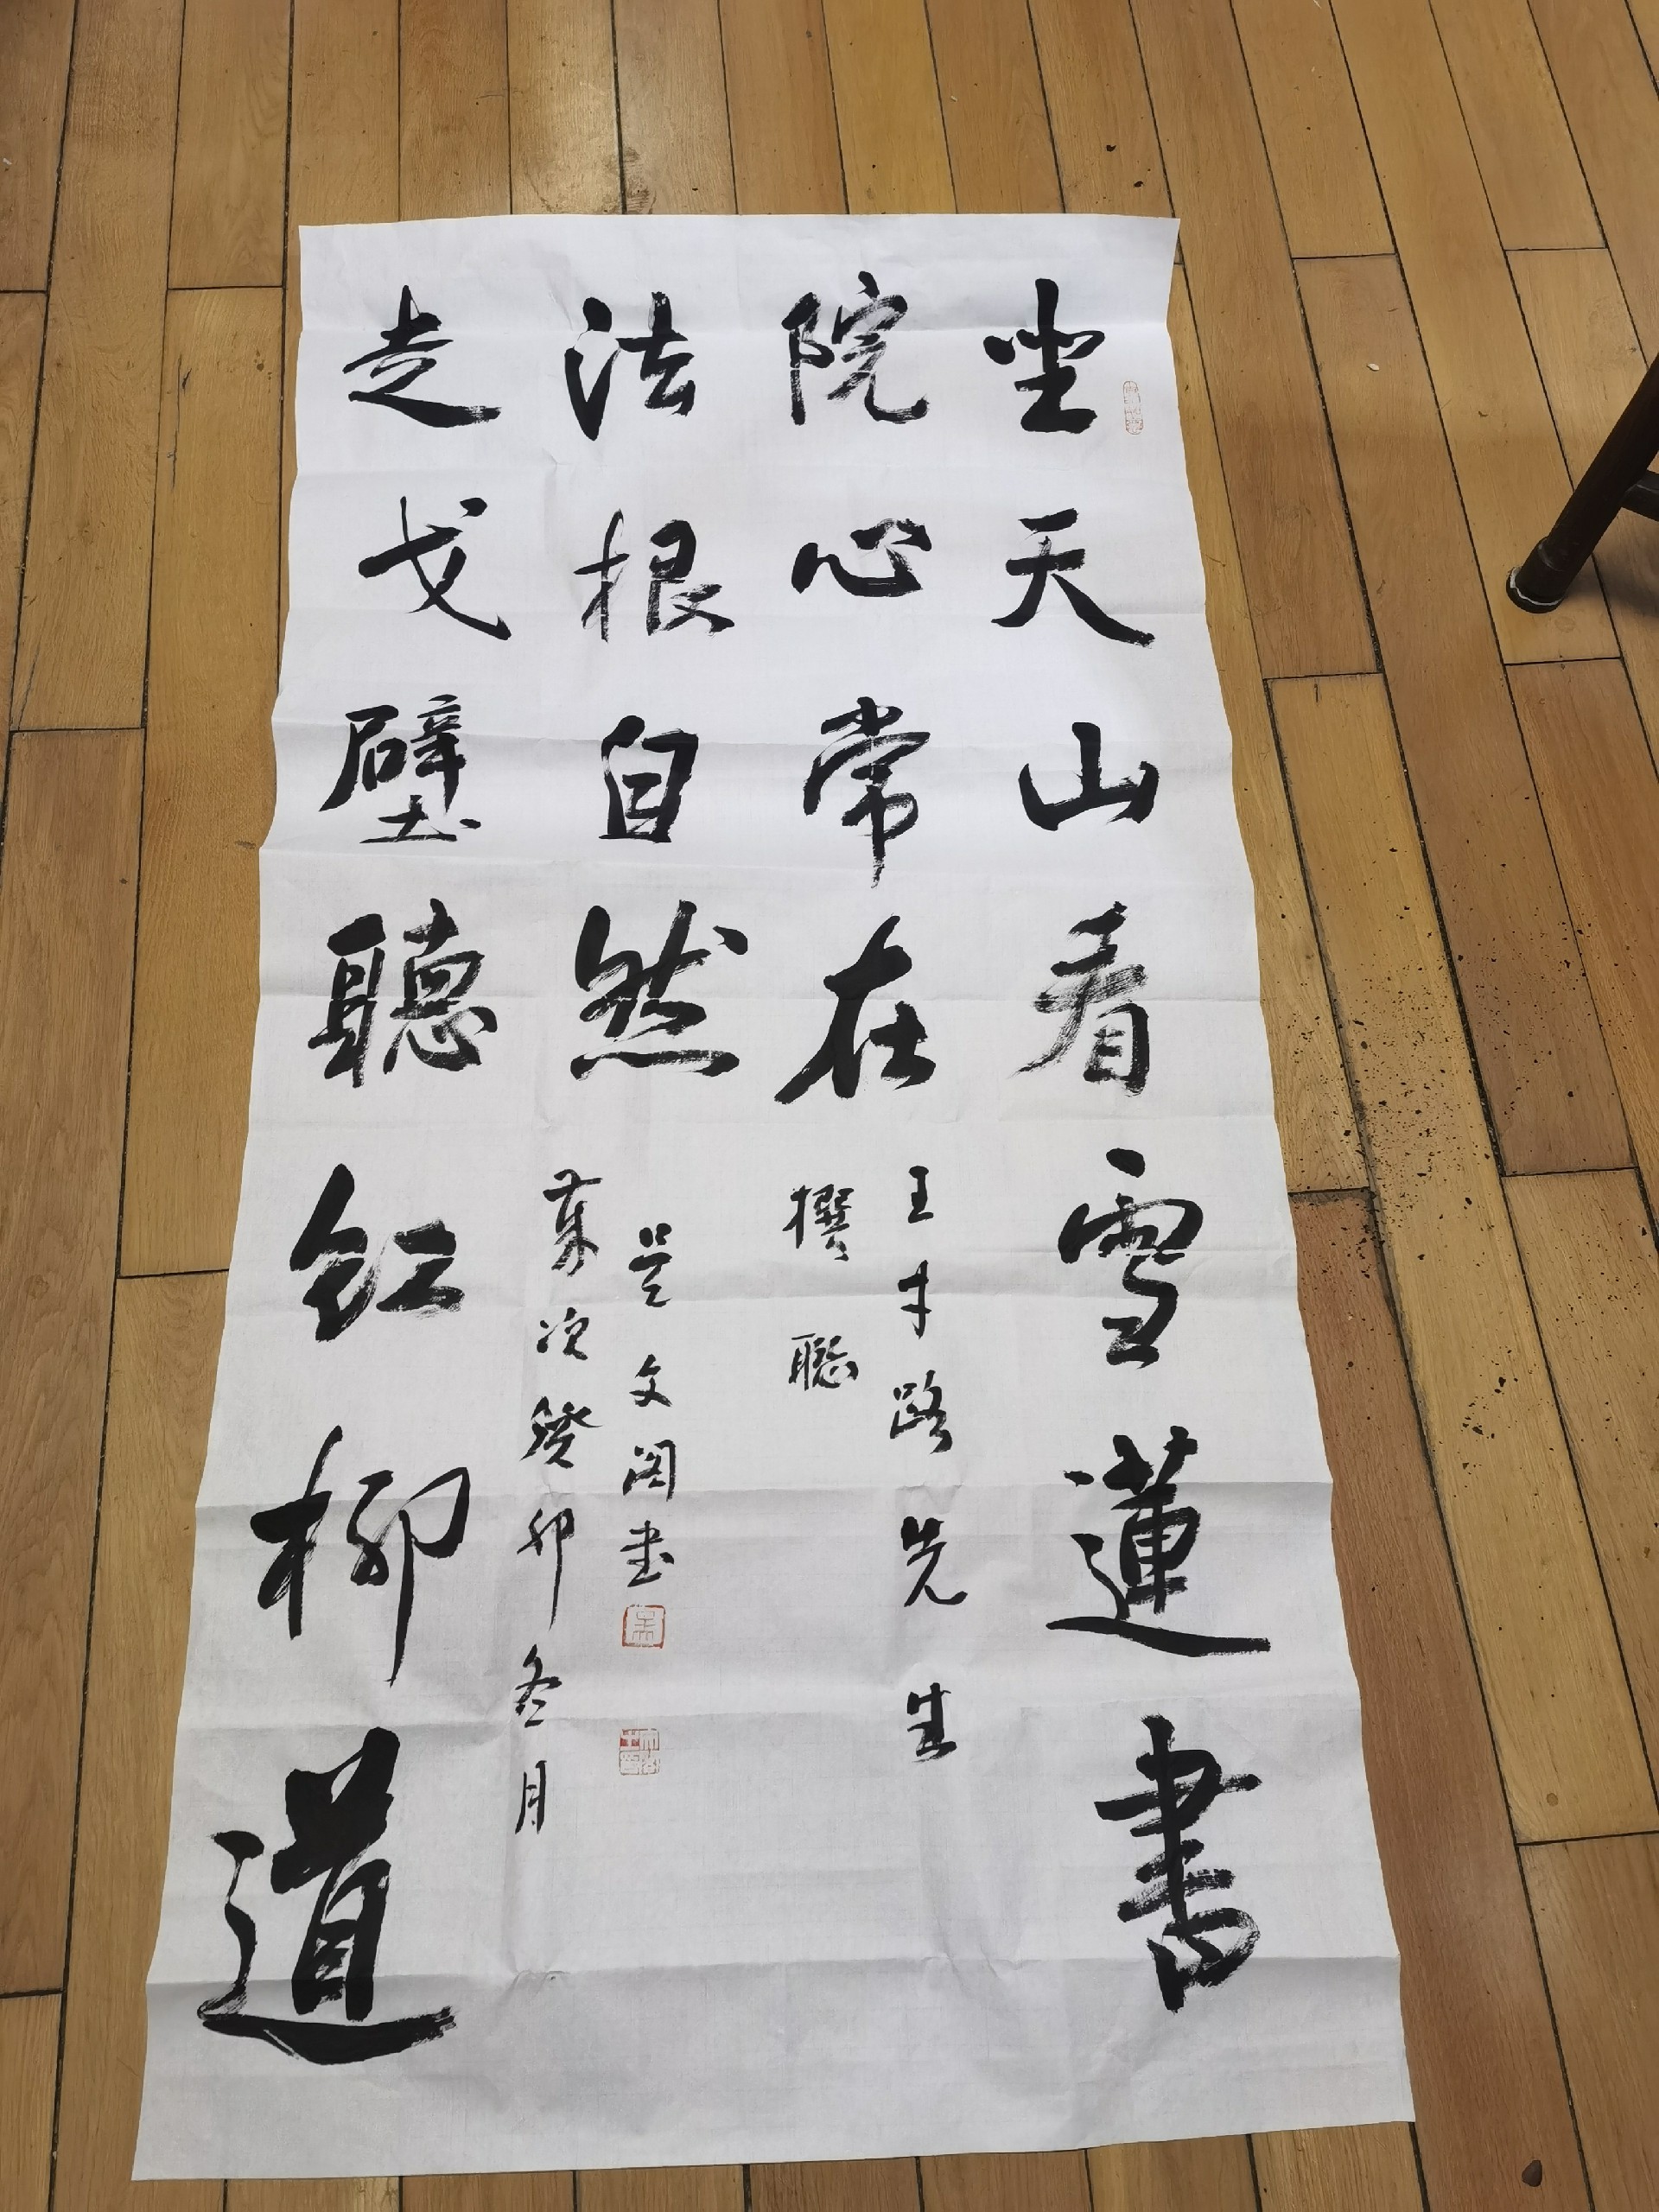 坐天山看雪蓮書
院心常在
王才路先生
撰聯
走戈壁聽紅柳道
法根自然
吴文阁書
歲次癸卯冬月